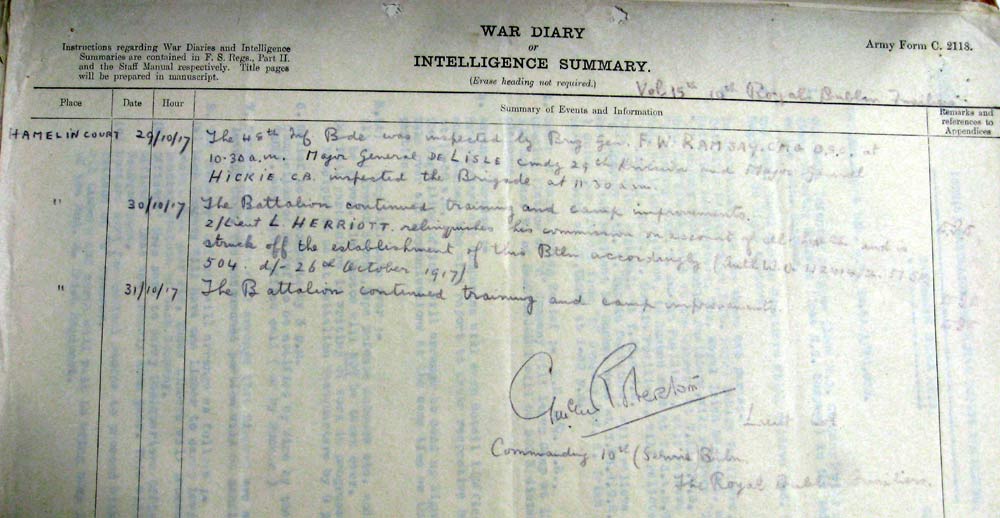 WAR DIARY
or
INTELLIGENCE SUMMARY.
(Erase heading not required.)
Instructions regarding War Diaries and Intelligence
Summaries are contained in F. S. Regs., Part II.
and the Staff Manual respectively. Title pages
will be prepared in manuscript.
Army Form C. 2118.
Vol: 15th 10th Royal Dublin Fusiliers
Place Date Hour Summary of Events and Information Remarks and
references to
Appendices
HAMELINCOURT 29/10/17 The 48th Inf Bde was inspected by Brig Gen. F.W. RAMSAY. C.M.G. D.S.O. at
10.30 a.m. Major General DE LISLE cmdg 29th Division and Major General
HICKIE. C.B. inspected the Brigade at 11.30 a.m.
" 30/10/17 The Battalion continued training and camp improvements.
2/Lieut L. HERRIOTT. relinquishes his commission on account of ill-health and is
struck off the establishment of this Btln accordingly (Auth W.O.
504. d/- 26th October 1917)
" 31/10/17 The Battalion continued training and camp improvements.
Lieut Col
Commanding 10th (Service) Battn.
The Royal Dublin Fusiliers.